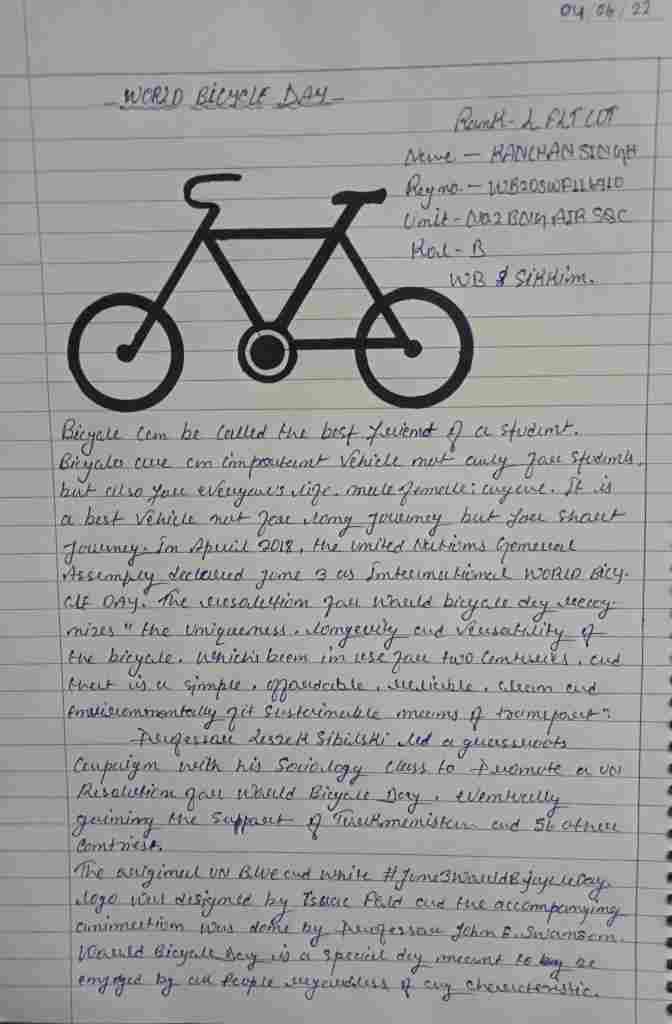 04/06/22
WORLD BICYCLE DAY
Rank - L FLT CDT
Name - KANCHAN SINGH
Reg no. -
Unit - No 2 BONG AIR SQC
Kol - B
WB & Sikkim.
Bicycle can be called the best friend of a student.
Bicycles are an important vehicle not only for students.
but also for everyone's life. male female; anyone. It is
a best vehicle not for long journey but for short
journey. In April 2018, the united Nations General
Assembly declared June 3 as International WORLD BICY-
CLE DAY. The resolution for world bicycle day recog-
nizes " the uniqueness, longevity and versatility of
the bicycle. which's been in use for two centuries, and
that is a simple, affordable, reliable, clean and
environmentally fit sustainable means of transport".
Professor Leszek Sibilski led a grassroots
Campaign with his Sociology class to Promote a UN
Resolution for World Bicycle Day, eventually
gaining the support of Turkmenistan and 56 other
The original UN Blue and white #June3WorldBicycleDay
logo was designed by Isaac Feld and the accompanying
animation was done by Professor John E. Swanson.
World Bicycle Day is a special day meant to be
enjoyed by all People regardless of any characteristic.